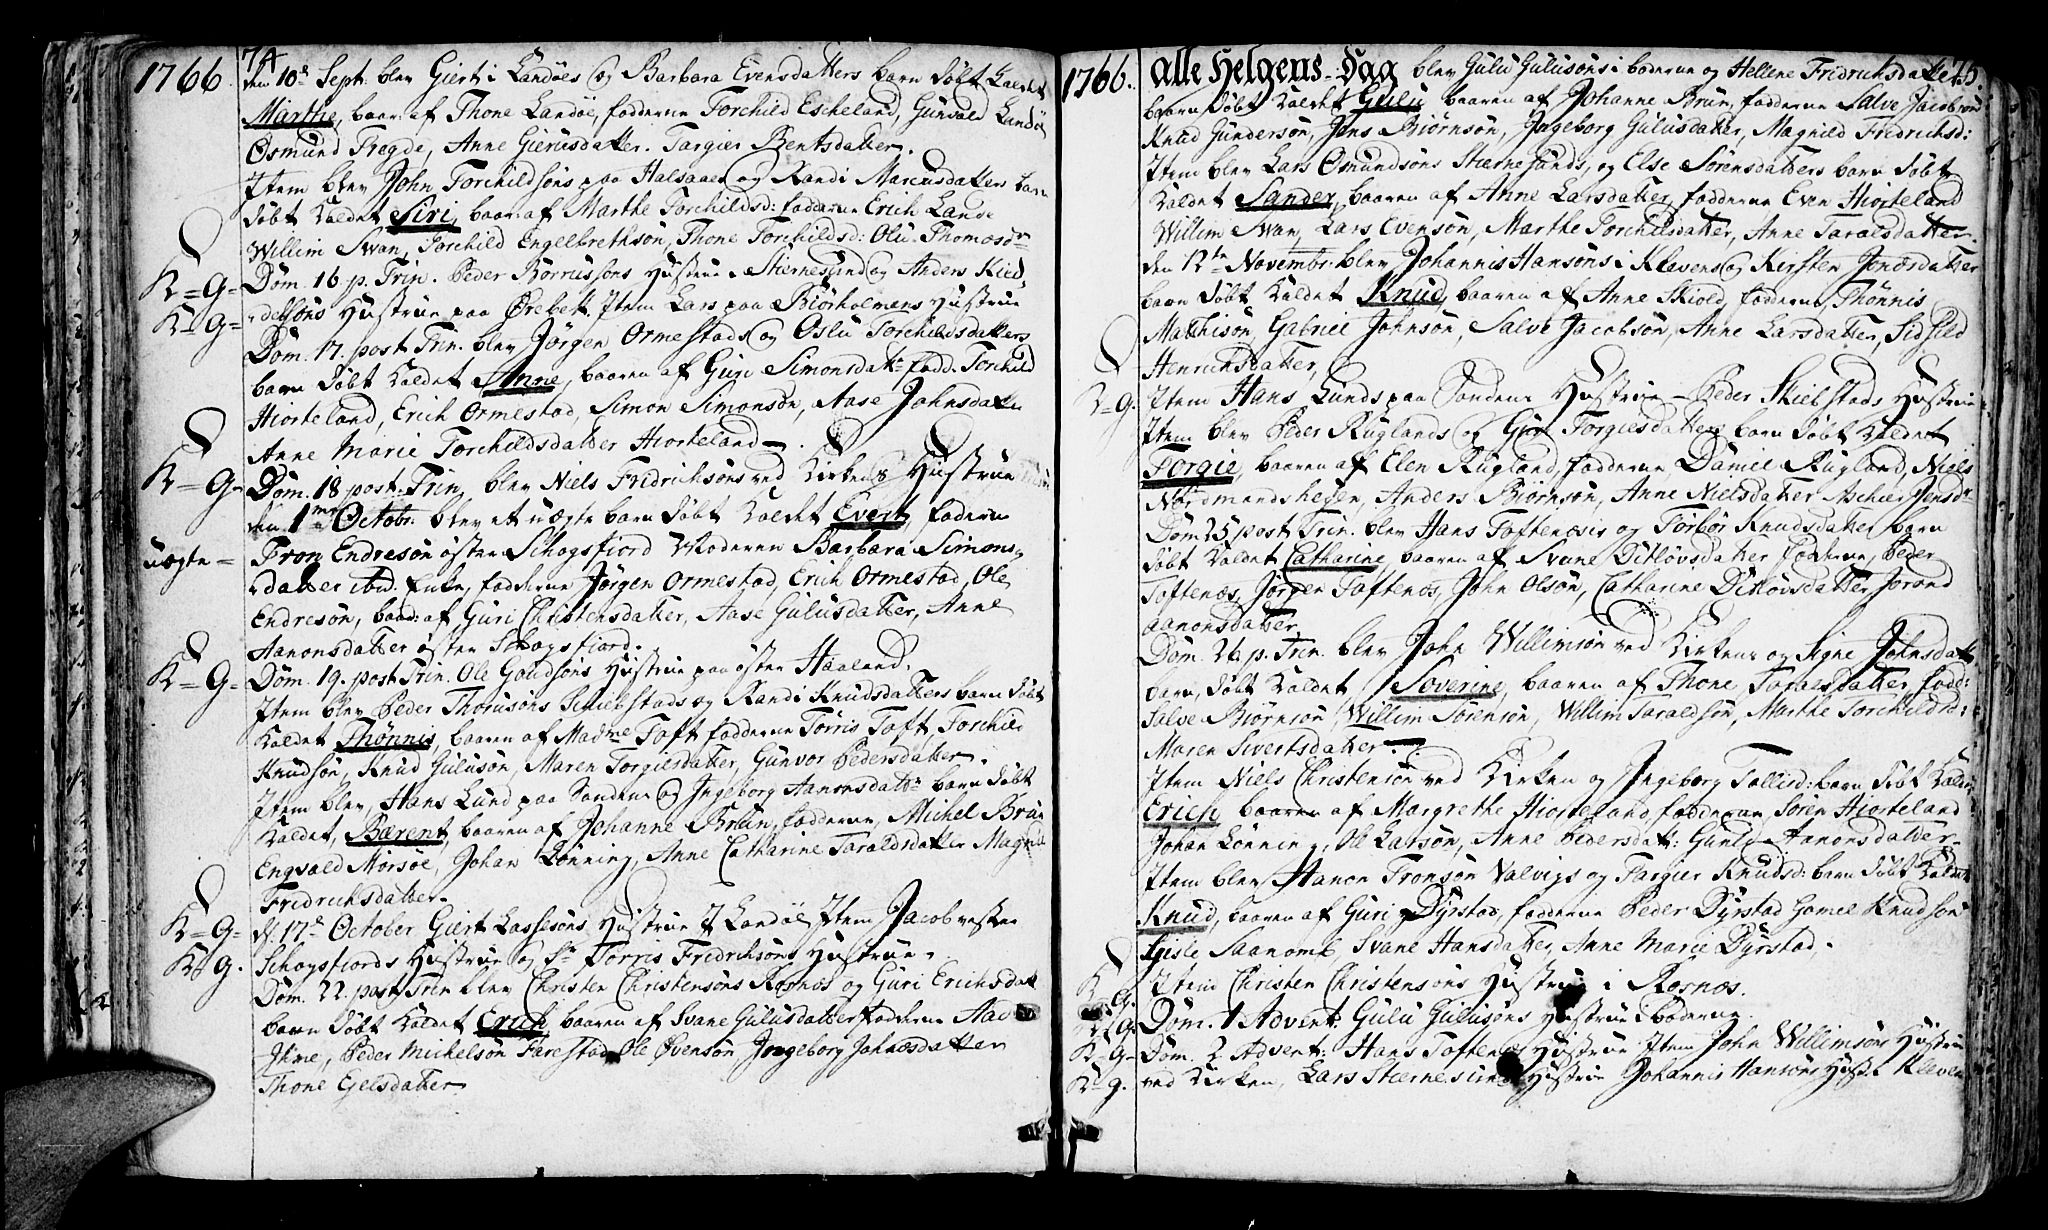 74
1766
den 10de Sept: blev Giert i Landöes og Barbara Evensdatters barn döbt kaldet
Marthe, baar: af Thone Landöe, fadderne Torchild Escheland, Gunvald Landöe
Osmund Tregde, Anne Gierusdatter. Targier Bentsdatter.
Item blev John Torchildsöns paa Halsaaer og Randi Marcusdatters barn
döbt kaldet Siri, baar: af Marthe Torchildsd: fadderne Erich Lande
Willim Swan, Torchild Engelbrethsön, Thone Torchildsd: Olu Thomasdr
K=G= Dom. 16 p. Trin. Peder Börrussöns Hustrue i Stiernesund og Anders Kied
K=G= =delsöns Hustrue paa Örebek, Item Lars paa Biörholmens Hustrue
Dom. 17. post Trin. blev Jörgen Ormestads og Oslu Torchildsdatters
barn döbt kaldet Anne, baaren af Guri Simonsdatr fadd: Torchild
Hiorteland, Erich Ormestad, Simon Simonsön, Aase Johnsdatter
Anne Marie Torchildsdatter Hiorteland.
K=G= Dom. 18 post Trin. blev Niels Fridrichsöns ved Kirkens Hustrue
den 1me Octobr: blev et uægte barn döbt kaldet Evert, faderen
uægte= Tron Endresön östen Schogsfiord Moderen Barbara Simons
=datter ibid. Enke, fadderne Jörgen Ormestad, Erich Ormestad, Ole
Endresön, baar: af Guri Christensdatter, Aase Gulusdatter, Anne
Aanonsdatter östen Schogsfiord.
K=G= Dom. 19. post Trin. Ole Goudsöns Hustrue paa östen Haaland.
Item blev Peder Thorusöns Skiebstads og Randi Knudsdatters barn döbt
kaldet Thönnes, baaren af Madme Toft fadderne Törris Toft, Torchild
Knudsön, Knud Gulusön, Maren Torgiersdatter, Gunvor Pedersdatter.
Item blev, Hans Lund paa Sandene og Ingeborg Aanonsdatr barn döbt
kaldet, Bærent, baaren af Johanne Brün, fadderne, Michel Brün
Engvald Morsöe, Johan Lönning, Anne Catharine Taraldsdatter Magnild
Fridrichsdatter.
K=G= d. 17de October Giert Lassesöns Hustrue i Landöe Item Jacob vesten
K=g. Schogsfiords Hustrue og Sr Torris Fredrichsöns Hustrue.
Dom. 22. post Trin blev Christen Christensöns Rosnæs og Guri Erichsdatr
barn döbt kaldet Erich, baaren af Svane Gulusdatter fadderne Aad
Ihme, Peder Michelsön Farestad Ole Evensön Ingeborg Johnsdatter
Thone Ejelsdatter
75.
1766. Alle Helgens-Dag blev Gulu Gulusöns i boderne og Hellene Fridrichsdatters
baarn döbt kaldet Gulu baaren af Johanne Brün, fadderne Salve Jacobsön
Knud Gundersön, Jens Biörnsön, Ingeborg Gulusdatter, Magnild Fredrichsd:
Item blev Lars Osmundsöns Stiernesunds, og Else Sörensdatters barn döbt
kaldet Sander, baaren af Anne Larsdatter, fadderne Even Hiorteland
Willim Swan, Lars Evensön, Marthe Torchildsdatter, Anne Taralsdatter.
den 12te Novembr: blev Johannis Hansöns i Klevens og Kirsten Jensdatter
barn döbt kaldet Knud, baaren af Anne Skiold, fadderne, Thönnis
Mathisön, Gabriel Johnsön, Salve Jacobsön, Anne Larsdatter, Sidsild
Henrichsdatter,
K=g. Item Hans Lunds paa Sandene Hustrue - Peder Skiebstads Hustrue
Item blev Peder Ruglands og Guri Torgiersdatters barn döbt kaldet
Torgie, baaren af Elen Rugland, fadderne Daniel Rugland, Niels
Nordmandshegen, Anders Biörnsön, Anne Nielsdatter Ascher Jensdr
Dom 25 post Trin. blev Hans Toftenæsis og Torbör Knudsdatter barn
döbt kaldet Catharine, baaren af Svane Ditlövsdatter fadderne Peder
Toftenæs, Jörgen Toftenæs, John Olsön, Catharine Ditlövsdatter, Jorand
Aanonsdatter
Dom. 26. p. Trin. blev John Willimsön ved Kirkens og Signe Johnsdatr
barn, döbt kaldet Soverine, baaren af Thone Taralsdatter, fadd:
Salve Biörnsön, Willim Sörensön, Willim Taraldsön, Marthe Torchildsd:
Maren Sivertsdatter.
Item Niels Christensön ved Kirken og Ingeborg Tollisd: barn döbt kaldet
Erich baaren af Margrethe Hiorteland, fadderne Sören Hiorteland
Johan Lönning, Ole Larsön, Anne Pedersdatr: Gunild Aanonsdatter
Item blev Aanon Tronsön Valvigs og Targier Knudsd: barn döbt kaldet
Knud, baaren af Guri Dyrstad, fadderne Peder Dyrstad Gamel Knudsön
Gisle Saanom, Svane Hansdatter, Anne Marie Dyrstad.
K=G. Item Christen Christensöns Hustrue i Rosnæs.
K=G. Dom. 1 Advent: Gulu Gulusöns Hustrue i boderne.
K=G= Dom. 2 Advent: Hans Toftenes Hustrue Item John Willimsöns Hustrue
K=g. ved Kirken, Lars Stiernesunds Hustrue Johannis Hansöns Hust. i Kleven